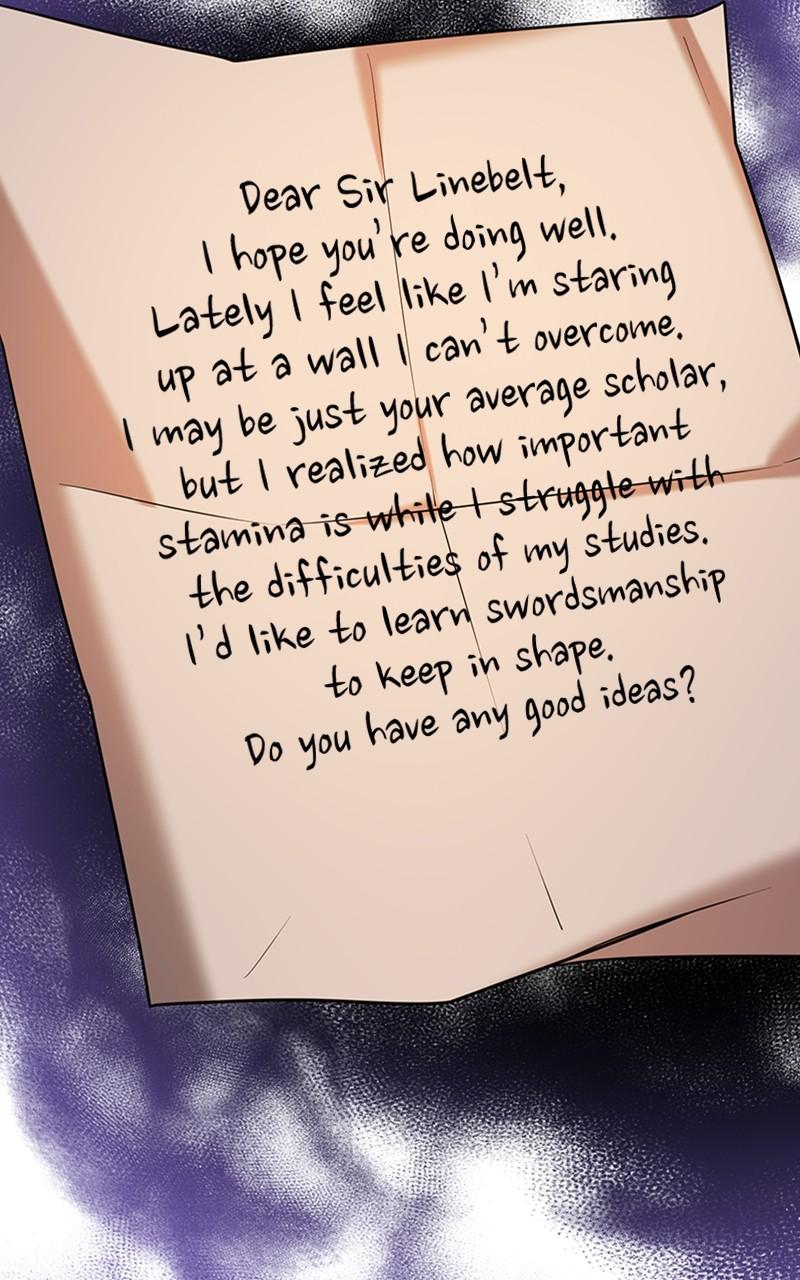 Dear Sir Linebelt,
I hope you're doing well.
Lately I feel like I'm staring
up at a wall I can't overcome.
I may be just your average scholar,
but I realized how important
stamina is while I struggle with
the difficulties of my studies.
I'd like to learn swordsmanship
to keep in shape.
Do you have any good ideas?